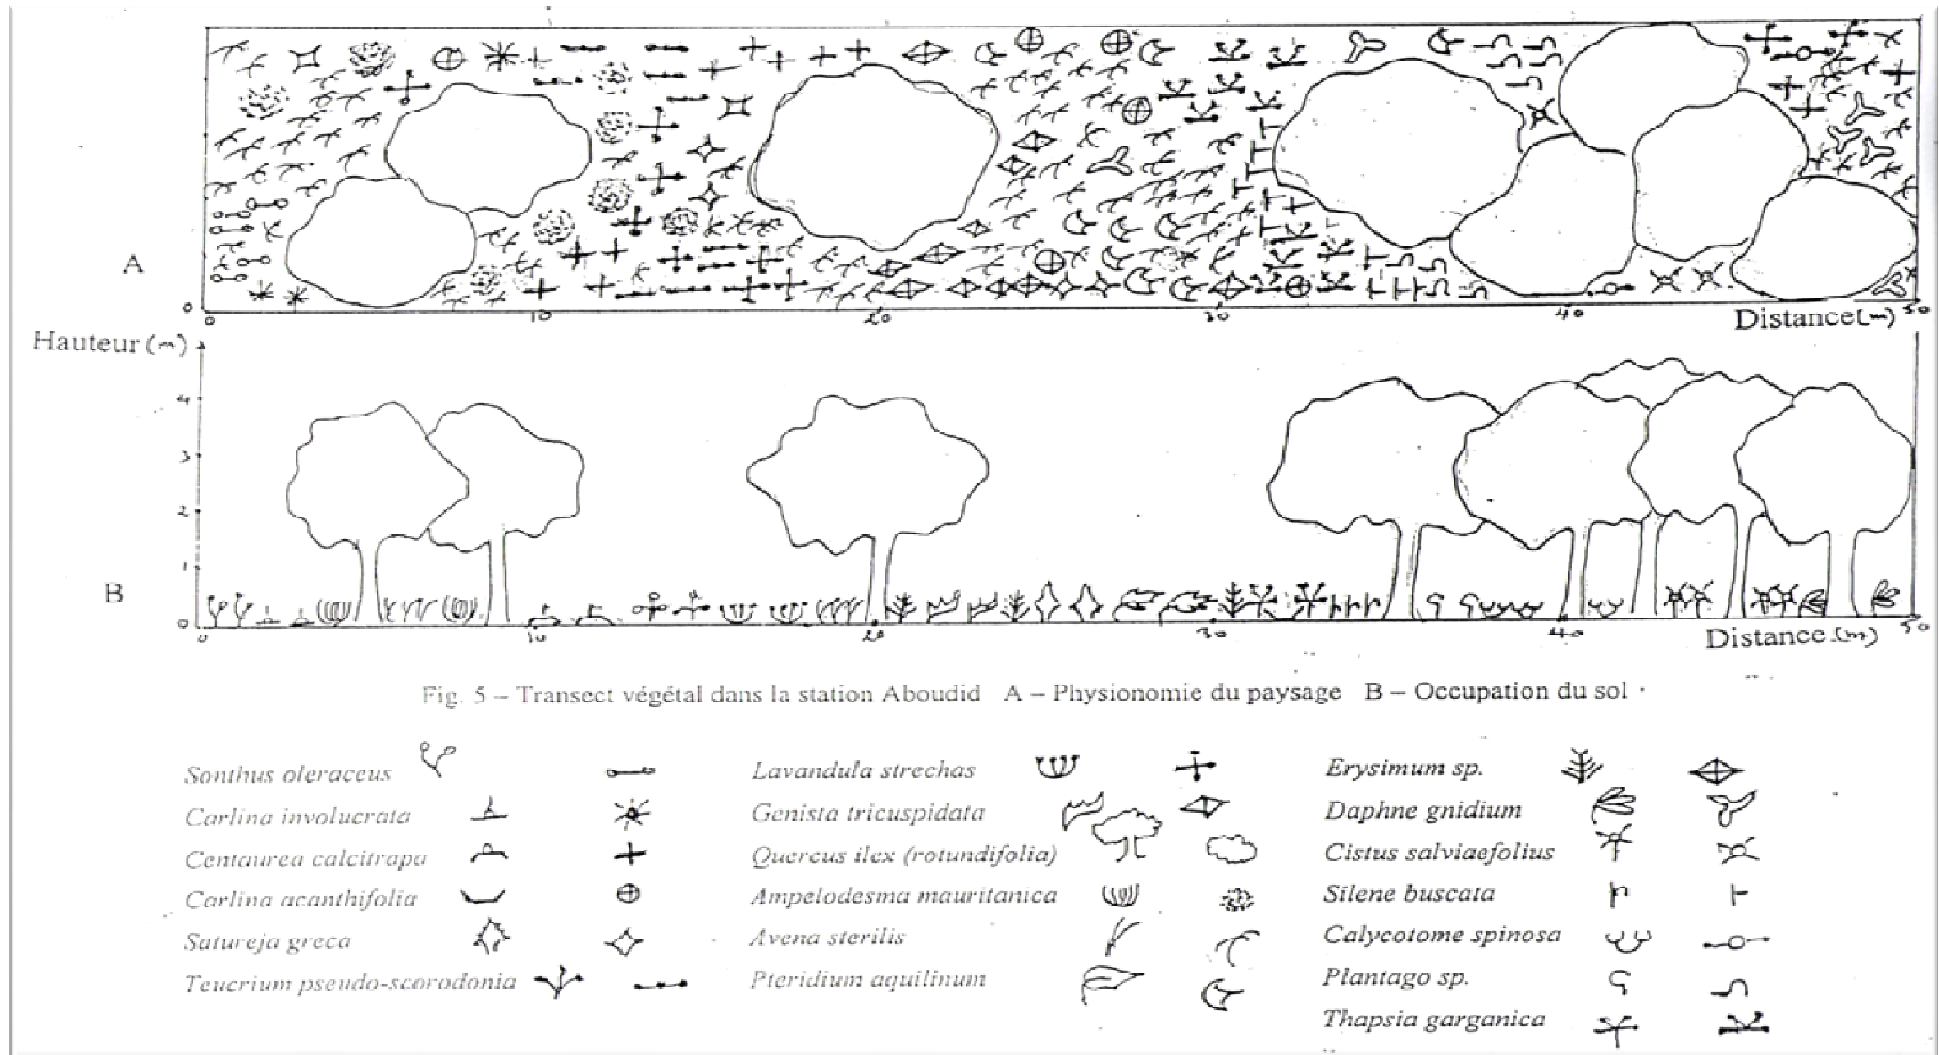 A
0
0 10 20 30 40 50
Distance(m)
Hauteur (m)
4
3
2
1
0
B
0 10 20 30 40 50
Distance (m)
Fig. 5 – Transect végétal dans la station Aboudid A – Physionomie du paysage B – Occupation du sol
Sonthus oleraceus
Carlina involucrata
Centaurea calcitrapa
Carlina acanthifolia
Satureja greca
Teucrium pseudo-scorodonia
Lavandula strechas
Genista tricuspidata
Quercus ilex (rotundifolia)
Ampelodesma mauritanica
Avena sterilis
Pteridium aquilinum
Erysimum sp.
Daphne gnidium
Cistus salviaefolius
Silene buscata
Calycotome spinosa
Plantago sp.
Thapsia garganica